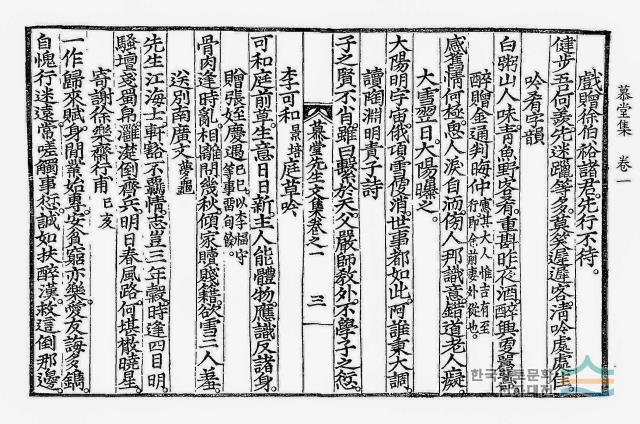 慕堂集 卷一
戱贈徐伯裕諸君先行不待
健步吾何羨先迷躐等多莫笑遲遲客淸吟處處佳
吟肴字韻
白粥山人味靑魚野客肴重斟昨夜酒醉興勇
醉贈金通判晦仲
感舊情何極愚人淚自而傍人那識意錯道老人癡
大雪翌日大陽曝之
大陽明宇宙俄頃雪便消世事都如此阿誰東大調
讀陶淵明責子詩
子之賢不肖雖曰繫於天父嚴師敎外不學子之愆
慕堂先生文集卷之一 三
李可和 景培 庭草吟
可和庭前草生意日日新主人能體物應識反諸身
贈張姪慶遇
骨肉逢時亂相離問幾秋傾家贖賤籍欲雪三人羞
送別南廣文 夢鼇
先生江海士軒豁不羈情志豈三年縠時逢四日明
騷壇憂蜀帛灘漇倒齊兵明日春風路何堪檄曉星
寄謝徐樂齋行甫 己亥
一作歸來賦身閒業始專安貧窮亦樂愛友誨多鐫
自愧行迷遠常嗟觸事愆誠如扶醉漢救這倒那邊